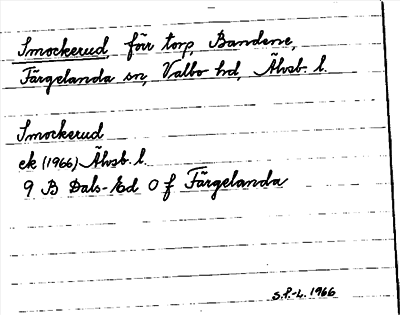 Smockerud, förr torp, Bandene,
Färgelanda sn, Valbo hd, Älvsb. l.
Smockerud
ek (1966) Älvsb. l.
9 B Dals-Ed 0 f Färgelanda
S.P.-L. 1966